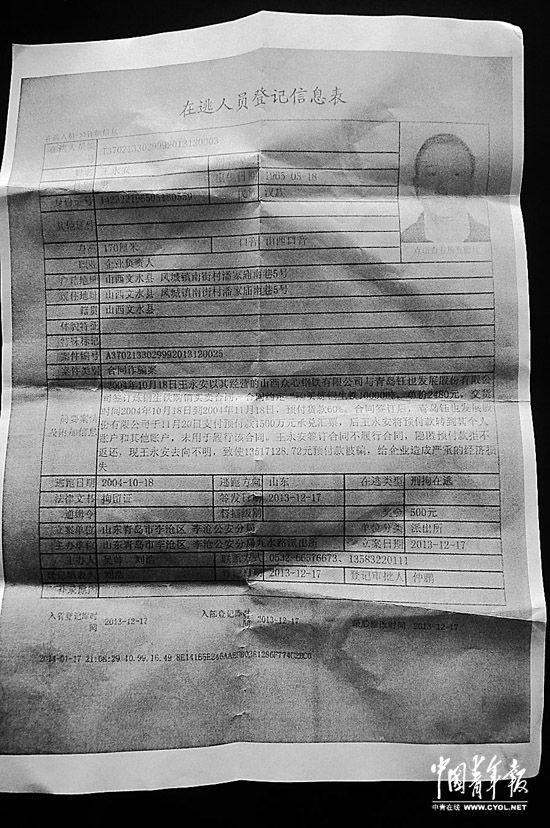 在逃人员登记信息表
在逃人员编号 T3702133029992012120003
姓名 王永安
出生日期 1965-05-18
民族 汉族
身份证号
其他证件
身高 170厘米 口音 山西口音
职业 企业负责人
户籍地址 山西文水县 凤城镇南街村潘家庙南巷5号
现住地址 山西文水县 凤城镇南街村潘家庙南巷5号
籍贯 山西文水县
体貌特征
特殊标记
案件编号 A3702133029992013120025
案件类别 合同诈骗案
简要案情及附加信息
2004年10月18日王永安以其经营的山西众心钢铁有限公司与青岛钰也发展股份有限公
单价2480元，交货
时间2004年10月18日到2004年11月18日，预付货款60%。合同签订后，青岛钰也发展股
份有限公司于11月20日支付预付款1500万元承兑汇票，后王永安将预付款转到其个人
账户和其他账户，未用于履行该合同，王永安签订合同不履行合同，隐匿预付款拒不
返还，现王永安去向不明，致使13517128.72元预付款被骗，给企业造成严重的经济损
失
逃跑日期 2004-10-18 逃跑方向 山东 在逃类型 刑拘在逃
法律文书 拘留证 签发日期 2013-12-17
通缉令 督捕级别 奖金 500元
立案单位 山东青岛市李沧区 李沧公安分局 单位分类 派出所
主办单位 山东青岛市李沧区 李沧公安分局九水路派出所 立案日期 2013-12-17
主办人 联系方式 0532-66576673、13583220111
2013-12-17 登记审批人 仲鹏
入省登记库时间 2013-12-17 入部登记库时间 2013-12-17 最后修改时间 2013-12-17
2014-01-17 21:08:29 10.99.16.49
中国青年报
中青在线 WWW.CYOL.NET